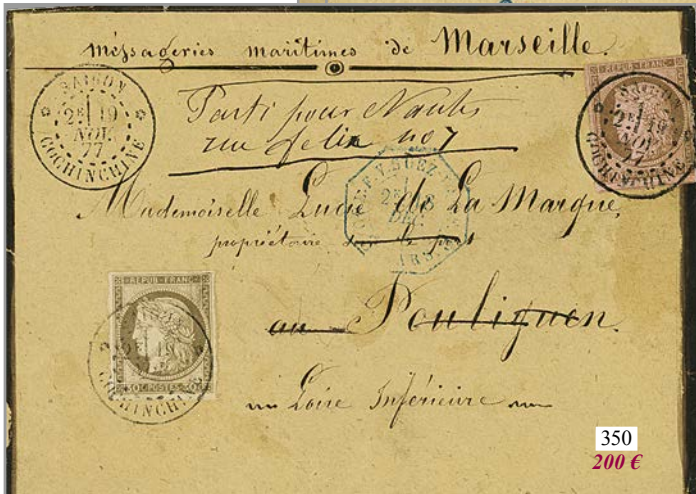 Messageries maritimes de Marseille.
SAIGON
2E 19
NOV.
77
COCHINCHINE
REPUB. FRANC.
SAIGON
2E 19
NOV.
77
COCHINCHINE
Parti pour Nantes
rue felix no 7
V. SUEZ
DEC.
Mademoiselle Lucie de La Marque,
propriétaire
au Pouliguen.
REPUB. FRANC.
30 C. POSTES 30 C.
COCHINCHINE
Loire Inférieure
350
200 €